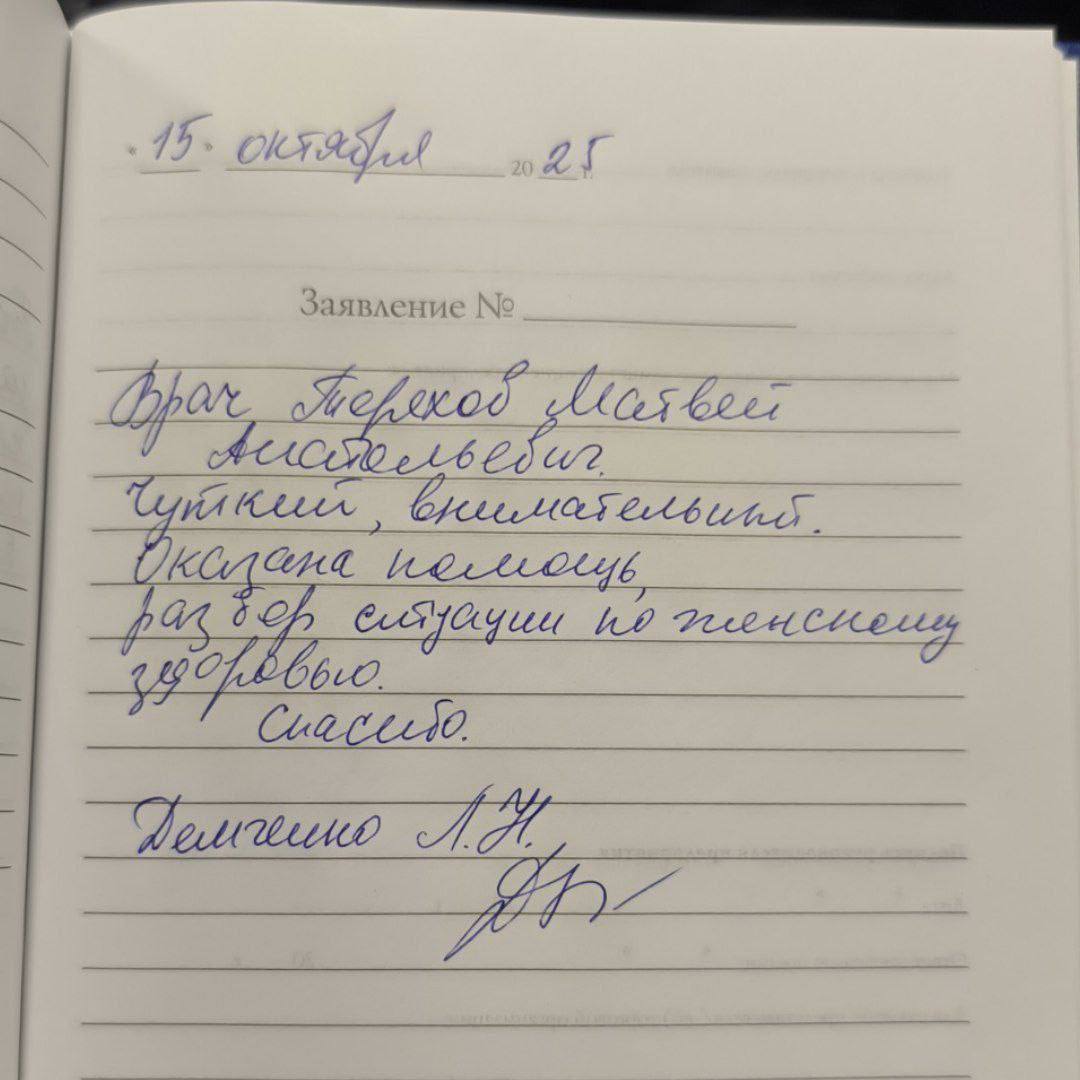 « 15 » октября 2025 г.
Заявление № 
Врач Терехов Матвей
Анатольевич.
Чуткий, внимательный.
Оказана помощь,
разбор ситуации по женскому
здоровью.
Спасибо.
Демченко Л.Н.